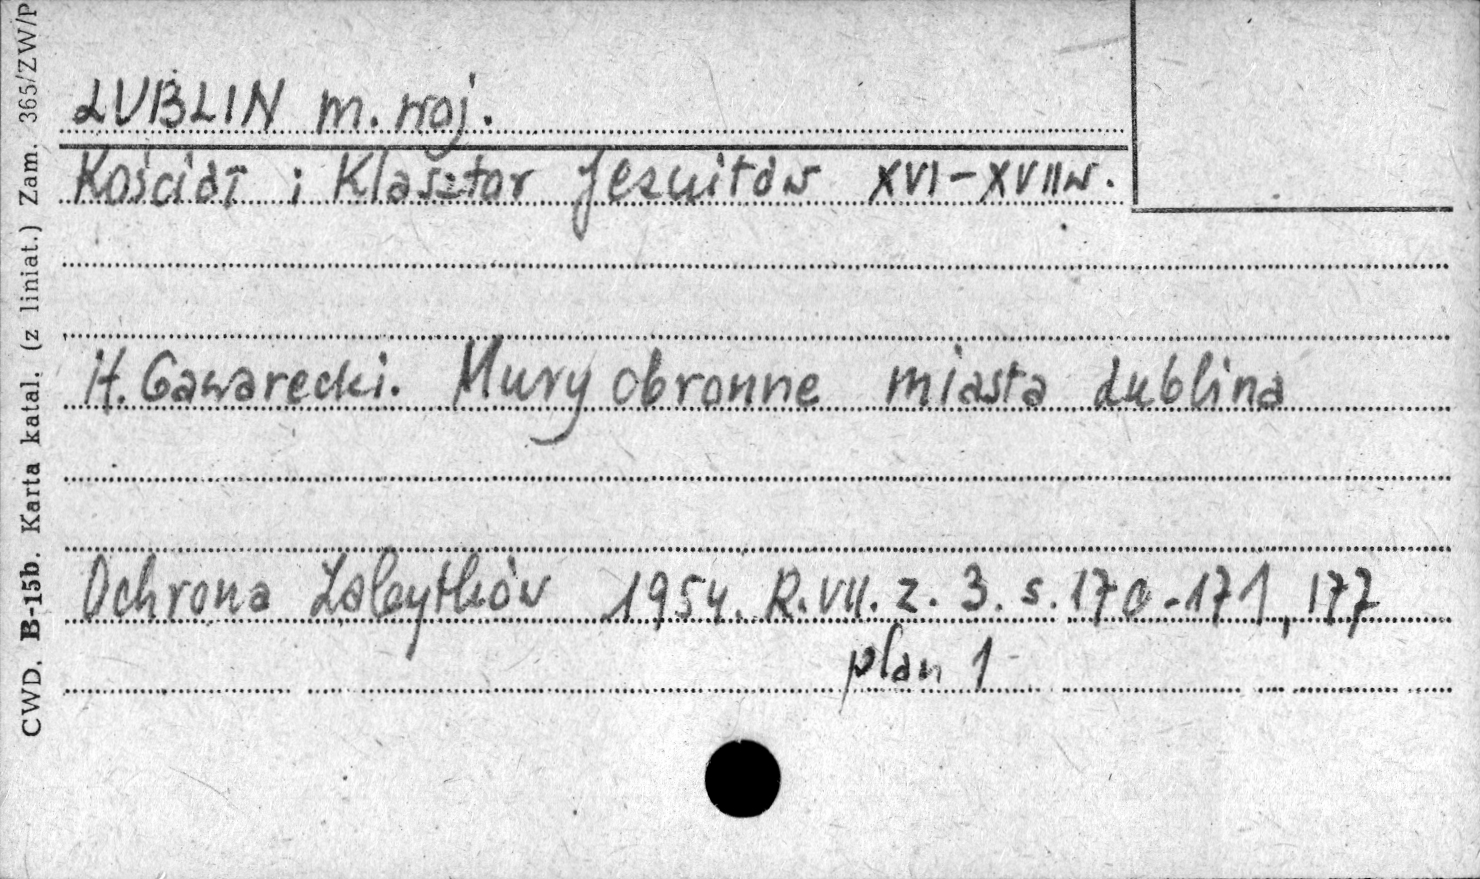 LUBLIN m. woj.
Kościół i Klasztor Jezuitów XVI-XVIIw.
H. Gawarecki. Mury obronne miasta Lublina
Ochrona Zabytków 1954. R.VII. z. 3. s. 170-171, 177
plan 1
CWD. B-15b. Karta katal. (z liniat.) Zam. 365/ZW/P